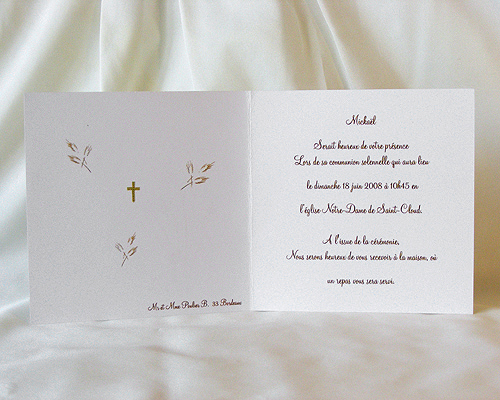 Mr et Mme Poulier B. 33 Bordeaux
Mickaël
Serait heureux de votre présence
Lors de sa communion solennelle qui aura lieu
le dimanche 18 juin 2008 à 10h45 en
l'église Notre-Dame de Saint-Cloud.
A l'issue de la cérémonie,
Nous serons heureux de vous recevoir à la maison, où
un repas vous sera servi.